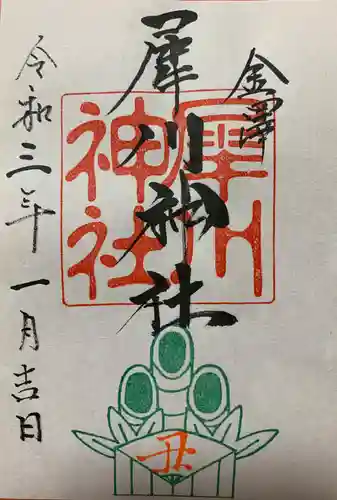 金澤
犀川神社
令和三年一月吉日
犀川
神社
丑